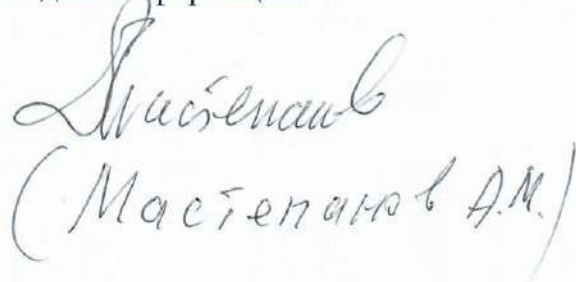 Мастепанов
(Мастепанов А.М.)